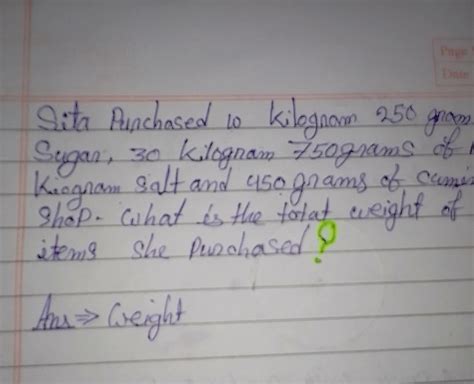 Page
Date
Sita Purchased 10 Kilogram 250 gram
Sugar, 30 Kilogram 750grams of
Kilogram Salt and 450 grams of Cumin
Shop. What is the total weight of
items She Purchased?
Ans ⇒ Weight